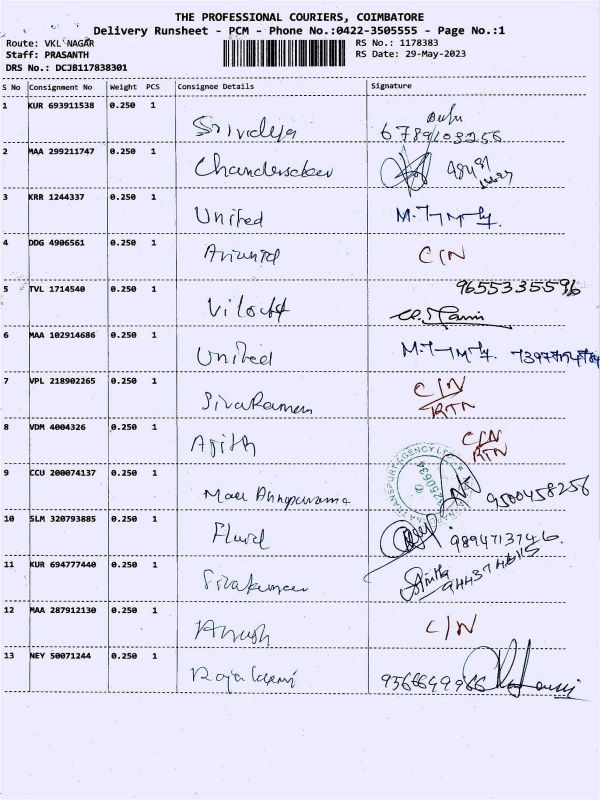 THE PROFESSIONAL COURIERS, COIMBATORE
Delivery Runsheet - PCM - Phone No.:0422-3505555 - Page No.:1
Route: VKL NAGAR
RS No.: 1178383
Staff: PRASANTH
RS Date: 29-May-2023
DRS No.: DCJB117838301
S No Consignment No Weight PCS Consignee Details Signature
1 KUR 693911538 0.250 1
Srividya 6789103256
2 MAA 299211747 0.250 1
Chandersekar
3 KRR 1244337 0.250 1
United
4 DDG 4906561 0.250 1
Arivind C/N
5 TVL 1714540 0.250 1 9655335596
6 MAA 102914686 0.250 1
United
7 VPL 218902265 0.250 1 C/N
SivaRamen RTN
8 VDM 4004326 0.250 1 C/N
Ajith RTN
9 CCU 200074137 0.250 1
Maa Annapurama 9500458256
10 SLM 320793885 0.250 1
Fluid 9894713746.
11 KUR 694777440 0.250 1
Sivakumar
12 MAA 287912130 0.250 1
Anush C/N
13 NEY 50071244 0.250 1
Rajalaxmi 9566649966